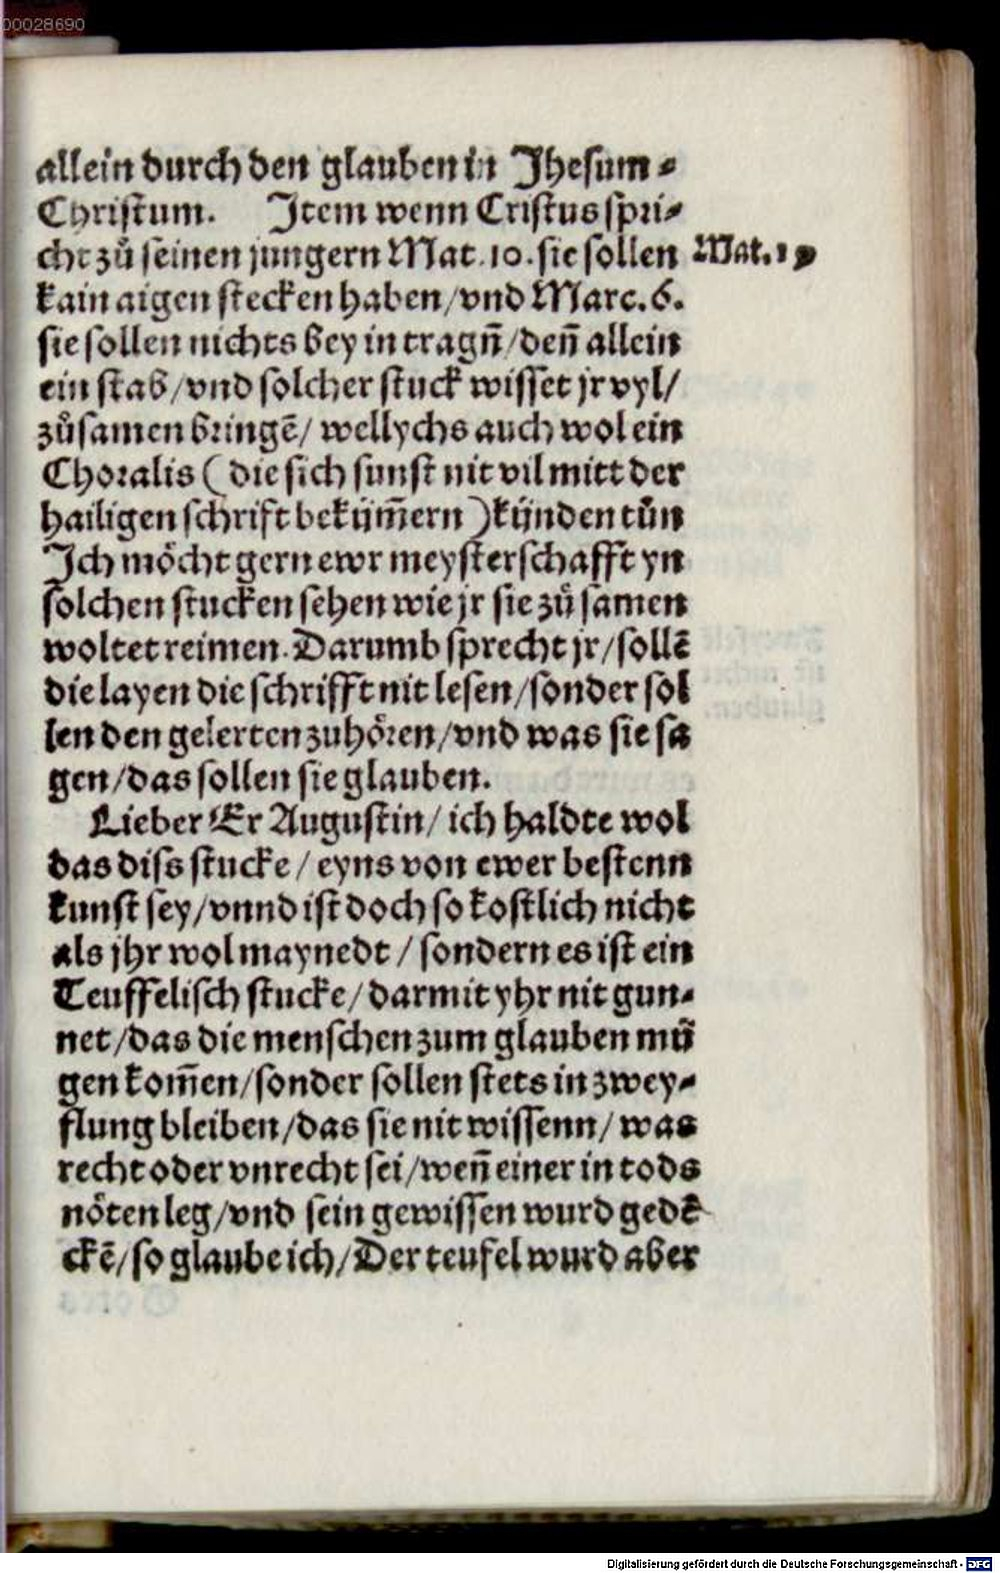 00028690
allein durch den glauben in Jhesum⸗
Christum. Item wenn Cristus spri⸗
cht zů seinen jungern Mat. 10. sie sollen
kain aigen stecken haben/vnd Marc. 6.
sie sollen nichts bey in tragñ/deñ allein
ein stab/vnd solcher stuck wisset jr vyl/
zůsamen bringē/ wellychs auch wol ein
Choralis (die sich sunst nit vil mitt der
hailigen schrift beküm̃ern) künden tůn
Ich möcht gern ewr meysterschafft yn
solchen stucken sehen wie jr sie zů samen
woltet reimen. Darumb sprecht jr/sollē
die layen die schrifft nit lesen/sonder sol
len den gelerten zuhören/vnd was sie sa
gen/das sollen sie glauben.
Lieber Er Augustin/ ich haldte wol
das diss stucke/ eyns von ewer bestenn
kunst sey/vnnd ist doch so kostlich nicht
als jhr wol maynedt/ sondern es ist ein
Teuffelisch stucke/darmit yhr nit gun⸗
net/das die menschen zum glauben mü
gen kom̃en/sonder sollen stets in zwey⸗
flung bleiben/das sie nit wissenn/ was
recht oder vnrecht sei/weñ einer in tods
nöten leg/vnd sein gewissen wurd gedē
ckē/so glaube ich/Der teufel wurd aber
Digitalisierung gefördert durch die Deutsche Forschungsgemeinschaft - DFG